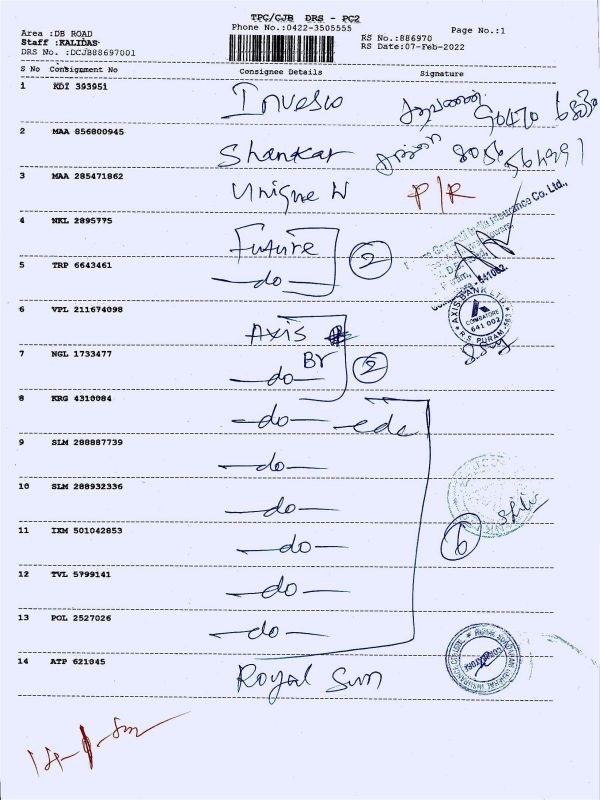 TPC/CJB DRS - PC2
Phone No.:0422-3505555
Page No.:1
Area :DB ROAD
Staff :KALIDAS
DRS No. :DCJB88697001
RS No.:886970
RS Date:07-Feb-2022
S No Consignment No Consignee Details Signature
1 KDI 393951 Invesco
2 MAA 856800945 Shankar
3 MAA 285471862 Unique N P/R
4 NKL 2895775 Future
5 TRP 6643461 -do- 2
6 VPL 211674098 Axis
7 NGL 1733477 Br -do- 2
8 KRG 4310084 -do-
9 SLM 288887739 -do-
10 SLM 288932336 -do-
11 IXM 501042853 -do- 6
12 TVL 5799141 -do-
13 POL 2527026 -do-
14 ATP 621045 Royal Sun
AXIS BANK LTD
COIMBATORE
641 002
R.S. PURAM